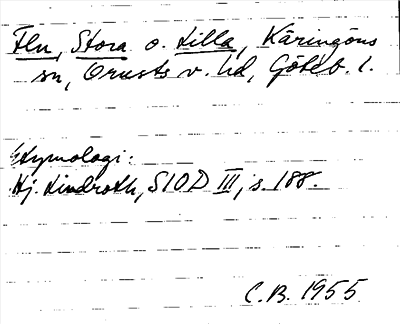 Flu, Stora o. Lilla, Käringöns
sn, Orusts v. hd, Göteb. l.
Etymologi:
Hj. Lindroth, SIOD III, s. 188.
C.B. 1955